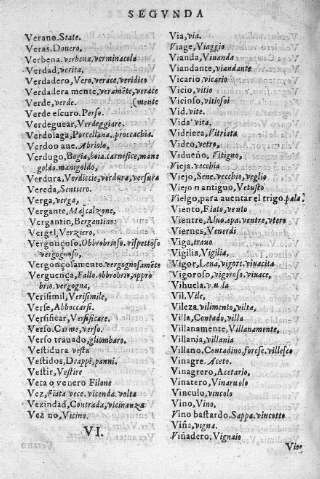 SEGVNDA
Verano. State.
Veras. Douero,
Verbena. verbena, verminacula
Verdad, verita,
Verdadero, Vero, verace, veridico
Verdadera mente, veraméte, verace
Verde, verde. (mente
Verde escuro. Perso.
Verdeguear, Verdeggiare.
Verdolaga, Porcellana, procacchia.
Verdon aue.
Verdugo, Bogia, boia, carnefice, mani
goldo. manigoldo,
Verdura, Verdicie, verdura, versura
Vereda, Sentiero.
Verga, verga,
Vergante, Mascalzone,
Vergantin, Bergantino
Vergel, Verziero,
Vergonçoso, Obbrobrioso, rispettoso
vergognoso,
Vergonçosamento vergognosaméte
Verguença, Fallo obbrobrio, appro
brio. vergogna,
Verisimil, Verisimile,
Verse, Abboccarsi.
Versificar, Versificare.
Verso. Carme, verso.
Verso trauado, gliombaro,
Vestidura vesta
Vestidos, Drappe, panni,
Vestir, Vestire
Veta o venero Filone
Vez, Fiata vece. vicenda. volta
Vezindad, Contrada, vicinanza
Vez no, Vicino.
VI.
Via, via.
Viage, Viaggio
Vianda, Viuanda
Viandante, viandante
Vicario, vicario
Vicio, vitio
Vicioso, vitiosoi
Vid. vite.
Vida, vita,
Vidriera, Vitriata
Vidro, vetro,
Vidueño, Vitigno,
Vieja. vecchia
Viejo, Sene. vecchio, veglio
Viejo n antiguo, Vetusto
Vielgo, para auentar el trigo. pala
Viento, Fiato, vento
Vientre, Aluo, apa. ventre, vtero
Viernes, Venerdi
Viga, trauo
Vigilia, Vigilia,
Vigor, Lena, vigore. viuacita
Vigoroso, vigoroso, viuace,
Vihuela. v ola
Vil. Vile,
Vileza. vilimento, vilta,
Villa, Contado, villa
Villanamente, Villanamente,
Villania, villania
Villano, Contadino, forese, villesco
Vinagre. Aceto.
Vinagrero, Acetario,
Vinatero, Vinaruolo
Vinculo, vincolo
Vino, Vino,
Vino bastardo. Sappa. vincotto
Viña, vigna.
Viñadero, Vignaio
Vio